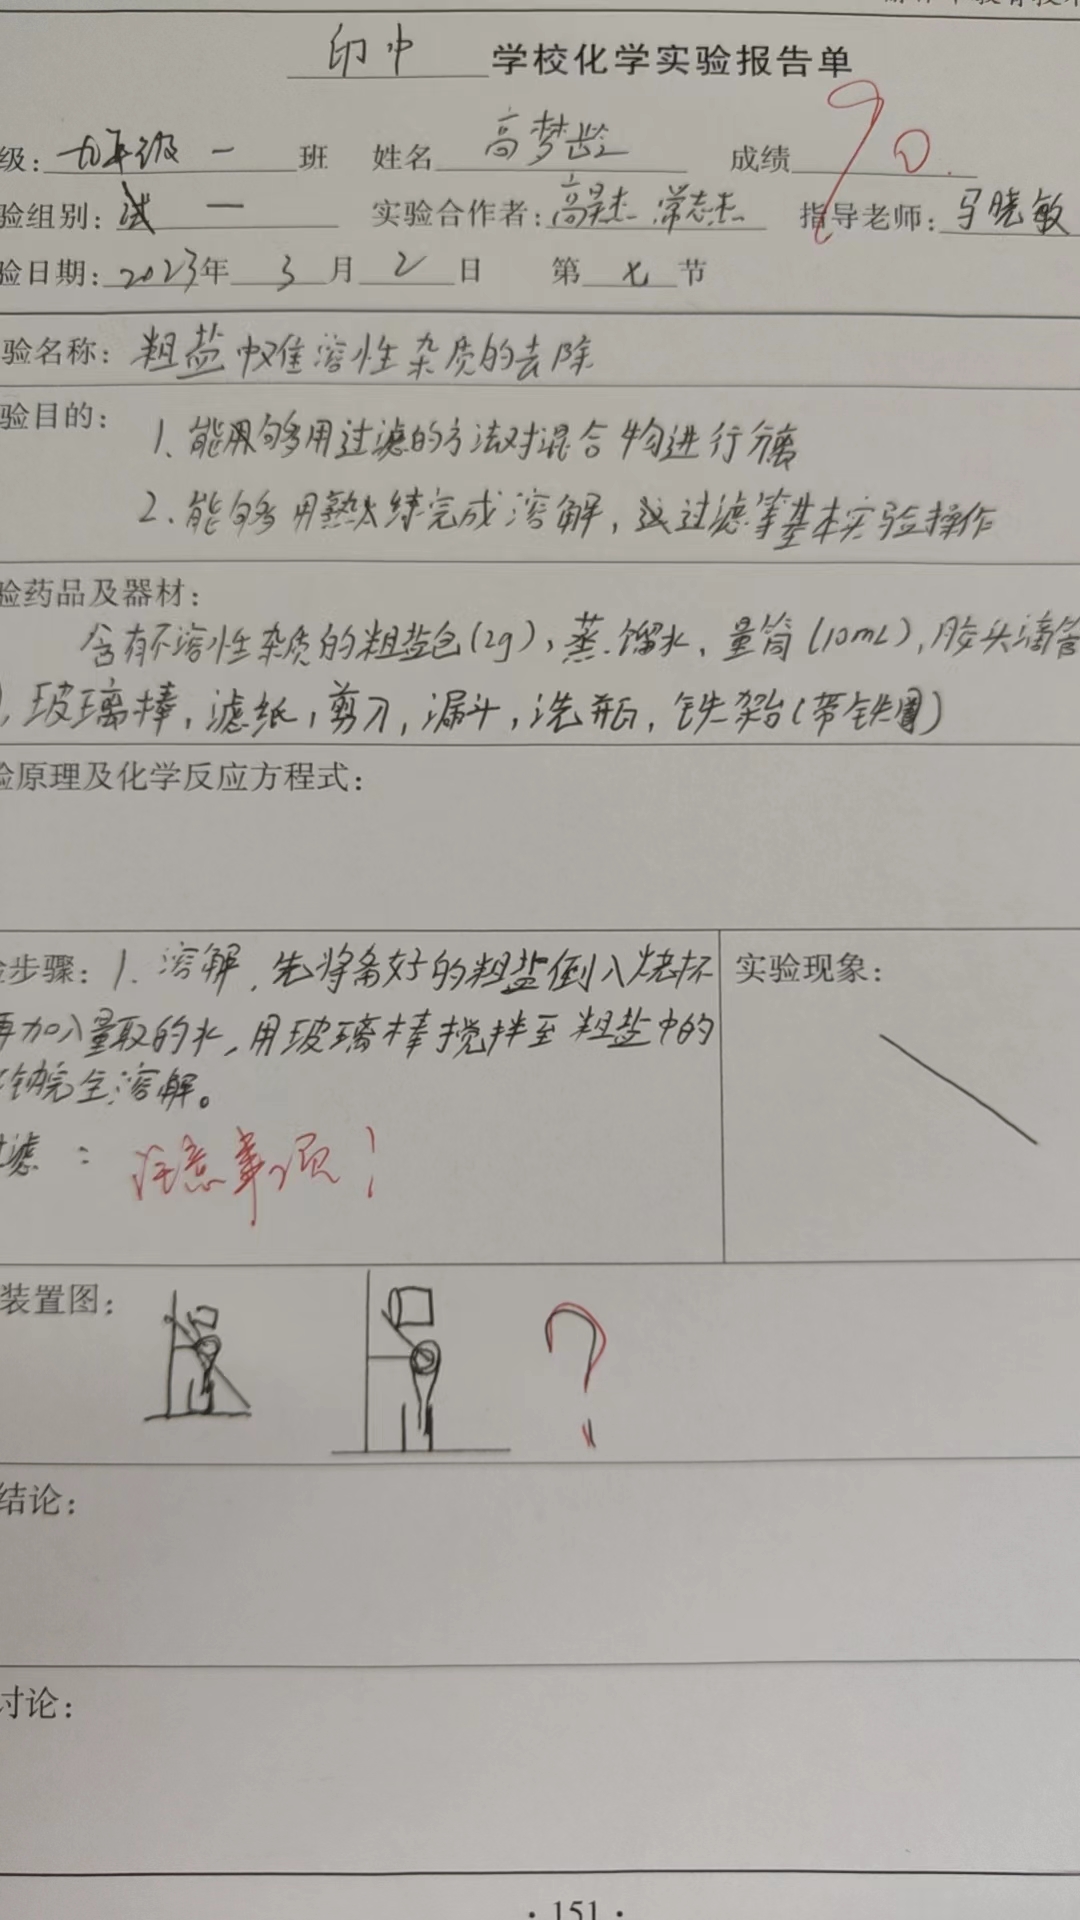 印中 学校化学实验报告单
级: 九年级 一 班 姓名 高梦龄 成绩 90
验组别: 试 一 实验合作者: 高昊杰 常志杰 指导老师: 马晓敏
验日期: 2023年 3 月 2 日 第 七 节
验名称: 粗盐中难溶性杂质的去除
验目的: 1、能够用过滤的方法对混合物进行分离
2、能够熟练完成溶解,过滤等基本实验操作
验药品及器材:
含有不溶性杂质的粗盐包(2g),蒸馏水,量筒(10mL),胶头滴管
,玻璃棒,滤纸,剪刀,漏斗,洗瓶,铁架台(带铁圈)
验原理及化学反应方程式:
步骤: 1. 溶解,先将备好的粗盐倒入烧杯
再加入量取的水,用玻璃棒搅拌至粗盐中的
钠完全溶解。
过滤: 注意事项!
实验现象:
装置图: ?
结论:
讨论:
· 151 ·